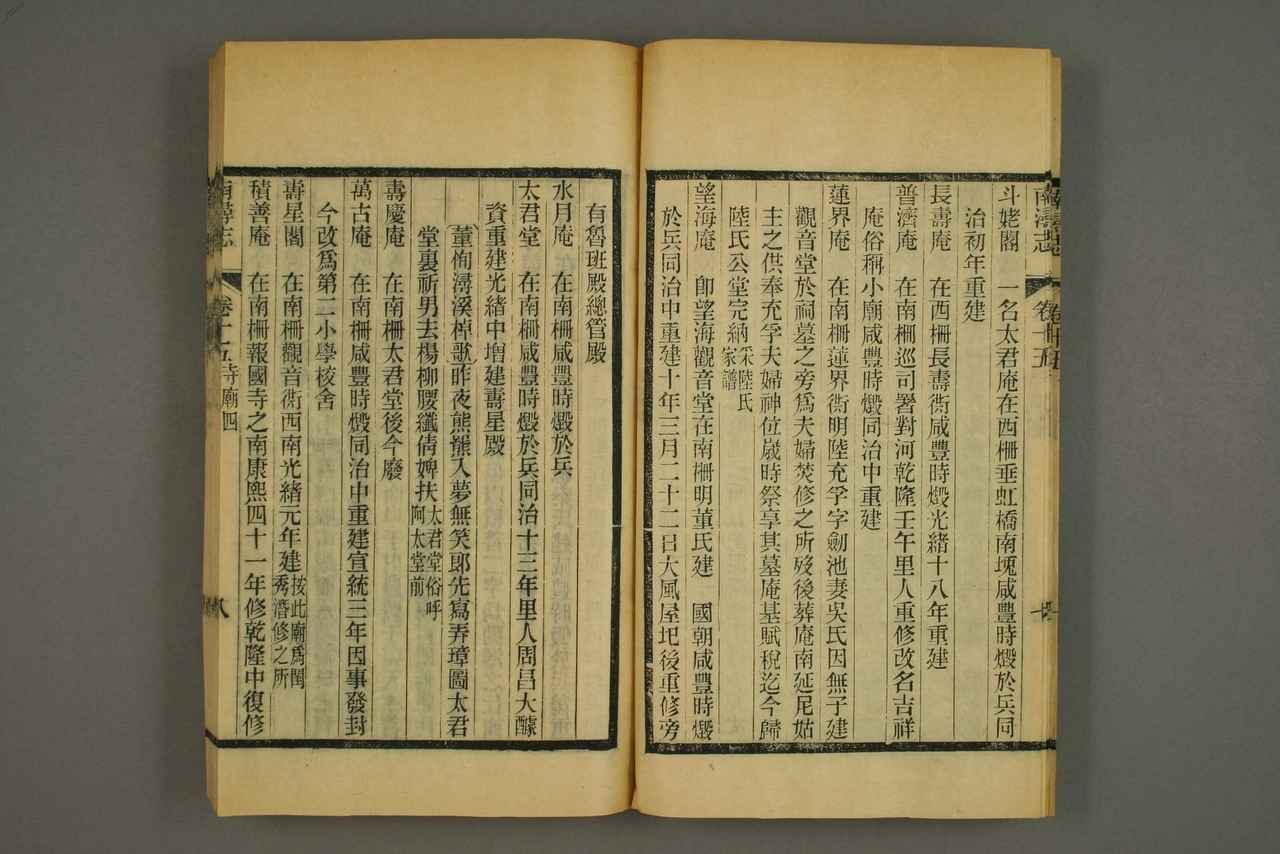 南潯志 卷十五 七
斗姥閣 一名太君庵在西柵垂虹橋南塊咸豐時燬於兵同
治初年重建
長壽庵 在西柵長壽衖咸豐時燬光緒十八年重建
普濟庵 在南柵巡司署對河乾隆壬午里人重修改名吉祥
庵俗稱小廟咸豐時燬同治中重建
蓮界庵 在南柵蓮界衖明陸充孚字劒池妻吳氏因無子建
觀音堂於祠墓之旁爲夫婦焚修之所歿後葬庵南延尼姑
主之供奉充孚夫婦神位歲時祭享其墓庵基賦稅迄今歸
陸氏公堂完納采陸氏家譜
望海庵 卽望海觀音堂在南柵明董氏建 國朝咸豐時燬
於兵同治中重建十年三月二十二日大風屋圮後重修旁
有魯班殿總管殿
水月庵 在南柵咸豐時燬於兵
太君堂 在南柵咸豐時燬於兵同治十三年里人周昌大醵
資重建光緒中增建壽星殿
董恂潯溪棹歌昨夜熊羆入夢無笑郞先寫弄璋圖太君
堂裏祈男去楊柳腰纖倩婢扶太君堂俗呼阿太堂前
壽慶庵 在南柵太君堂後今廢
萬古庵 在南柵咸豐時燬同治中重建宣統三年因事發封
今改爲第二小學校舍
壽星閣 在南柵觀音衖西南光緒元年建按此廟爲閨秀潛修之所
積善庵 在南柵報國寺之南康熙四十一年修乾隆中復修
南潯志 卷十五 寺廟四 八